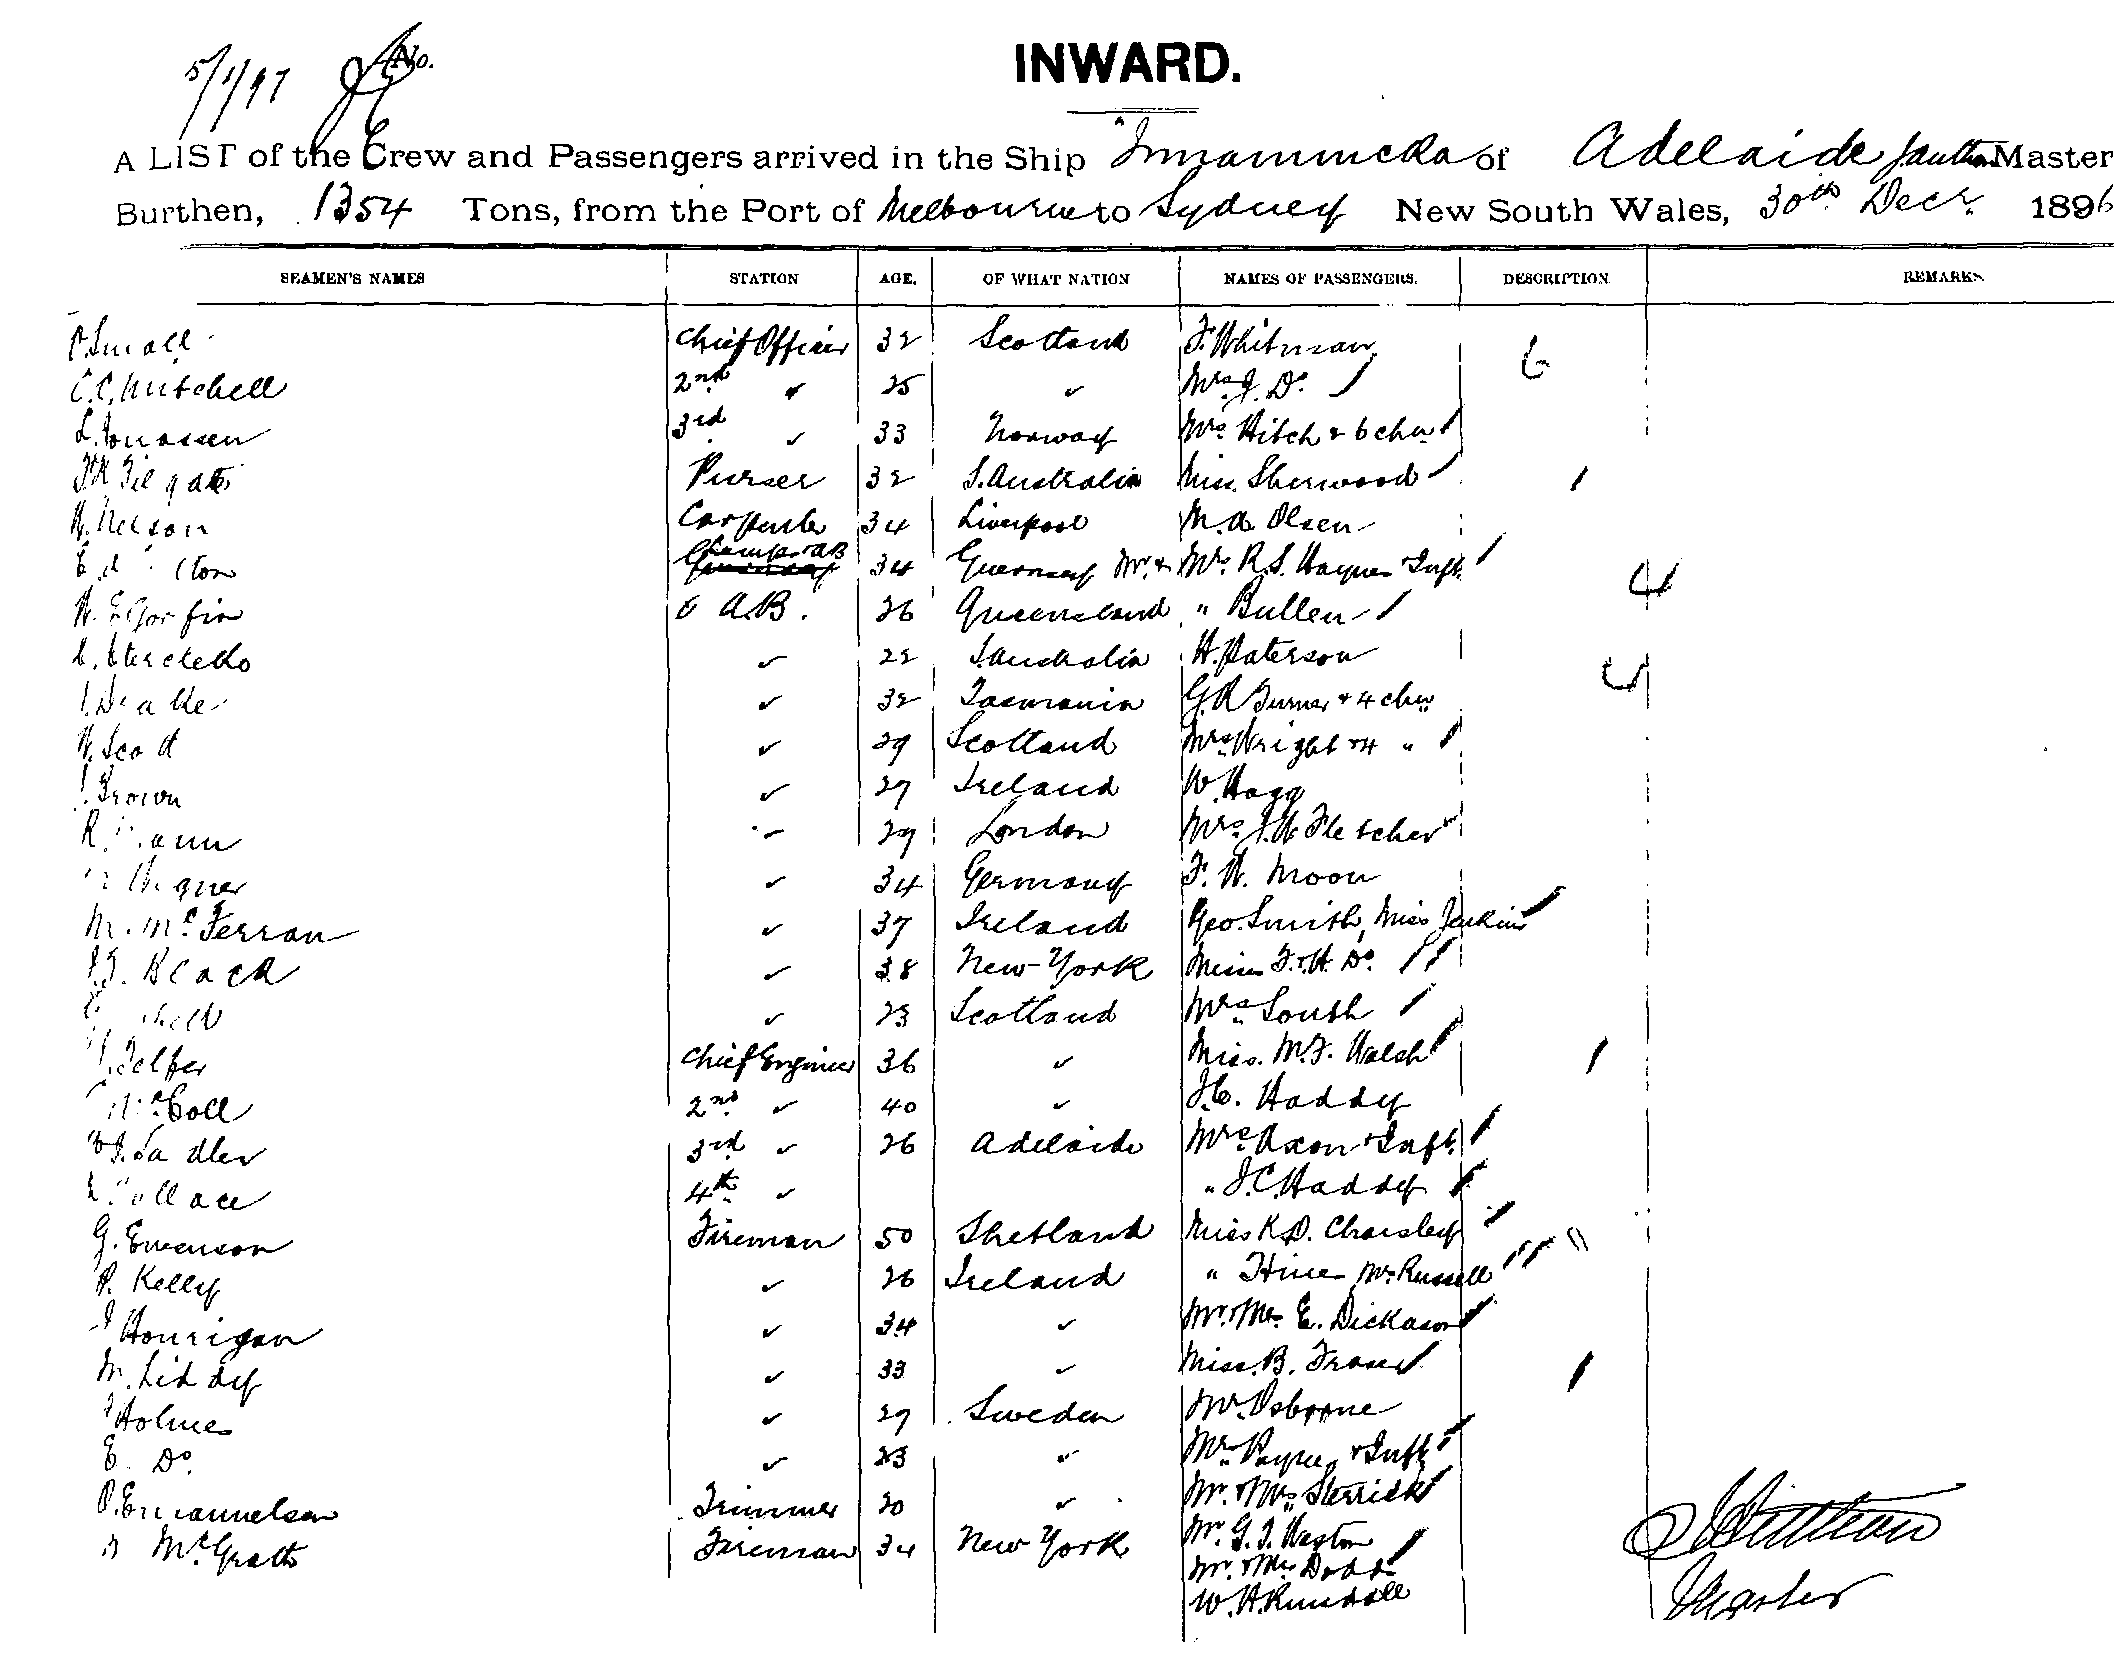 5/1/97 No.
INWARD.
A LIST of the Crew and Passengers arrived in the Ship "Innamincka of Adelaide Master
Burthen, 1354 Tons, from the Port of Melbourne to Sydney New South Wales, 30th Decr. 1896
SEAMEN'S NAMES STATION AGE. OF WHAT NATION NAMES OF PASSENGERS. DESCRIPTION REMARKS
P. Small Chief Officer 32 Scotland F. Whitman 6
C.C. Mitchell 2nd " 25 " Mrs J. Do.
L. Jonassen 3rd " 33 Norway Mrs Hitch & 6 chn
Filgate Purser 32 S. Australia Miss Sherwood
H. Nelson Carpenter 34 Liverpool Olsen
Lamps & AB 34 Guernsey Mr. & Mrs R.S. Haynes & Inft. 4
A.B. 26 Queensland " Bullen
" 22 S. Australia H. Paterson
" 32 Tasmania G.R. Turner & 4 chn
W. Scott " 29 Scotland Mrs Wright & 4 "
J. Brown " 27 Ireland W. Hagg
" 29 London Mrs J.W. Fletcher
" 34 Germany F. W. Moon
M. McFerran " 37 Ireland Geo. Smith, Miss Jenkins
Black " 38 New York Misses F. & H. Do.
" 23 Scotland Mrs South
Telfer Chief Engineer 36 " Miss. M.F. Walsh
McColl 2nd " 40 " J.C. Haddy
Sadler 3rd " 26 Adelaide Mrs Axon & Inft.
4th " " J.C. Haddy
G. Ewenson Fireman 50 Shetland Miss K.D. Charsley
P. Kelly " 26 Ireland " Hine Mr. Russell
Hourigan " 34 " Mr. & Mrs E. Dickason
M. Liddy " 33 " Miss. B. Fraser
Holmes " 29 Sweden Mr. Osborne
E. Do. " 23 " Mrs Payne & Inft
P. Emanuelsen Trimmer 20 " Mr. & Mrs Sterrick
McGrath Fireman 34 New York Mr. G.T. Weston
Mr. & Mrs Dodd
W. H. Rundall
Master